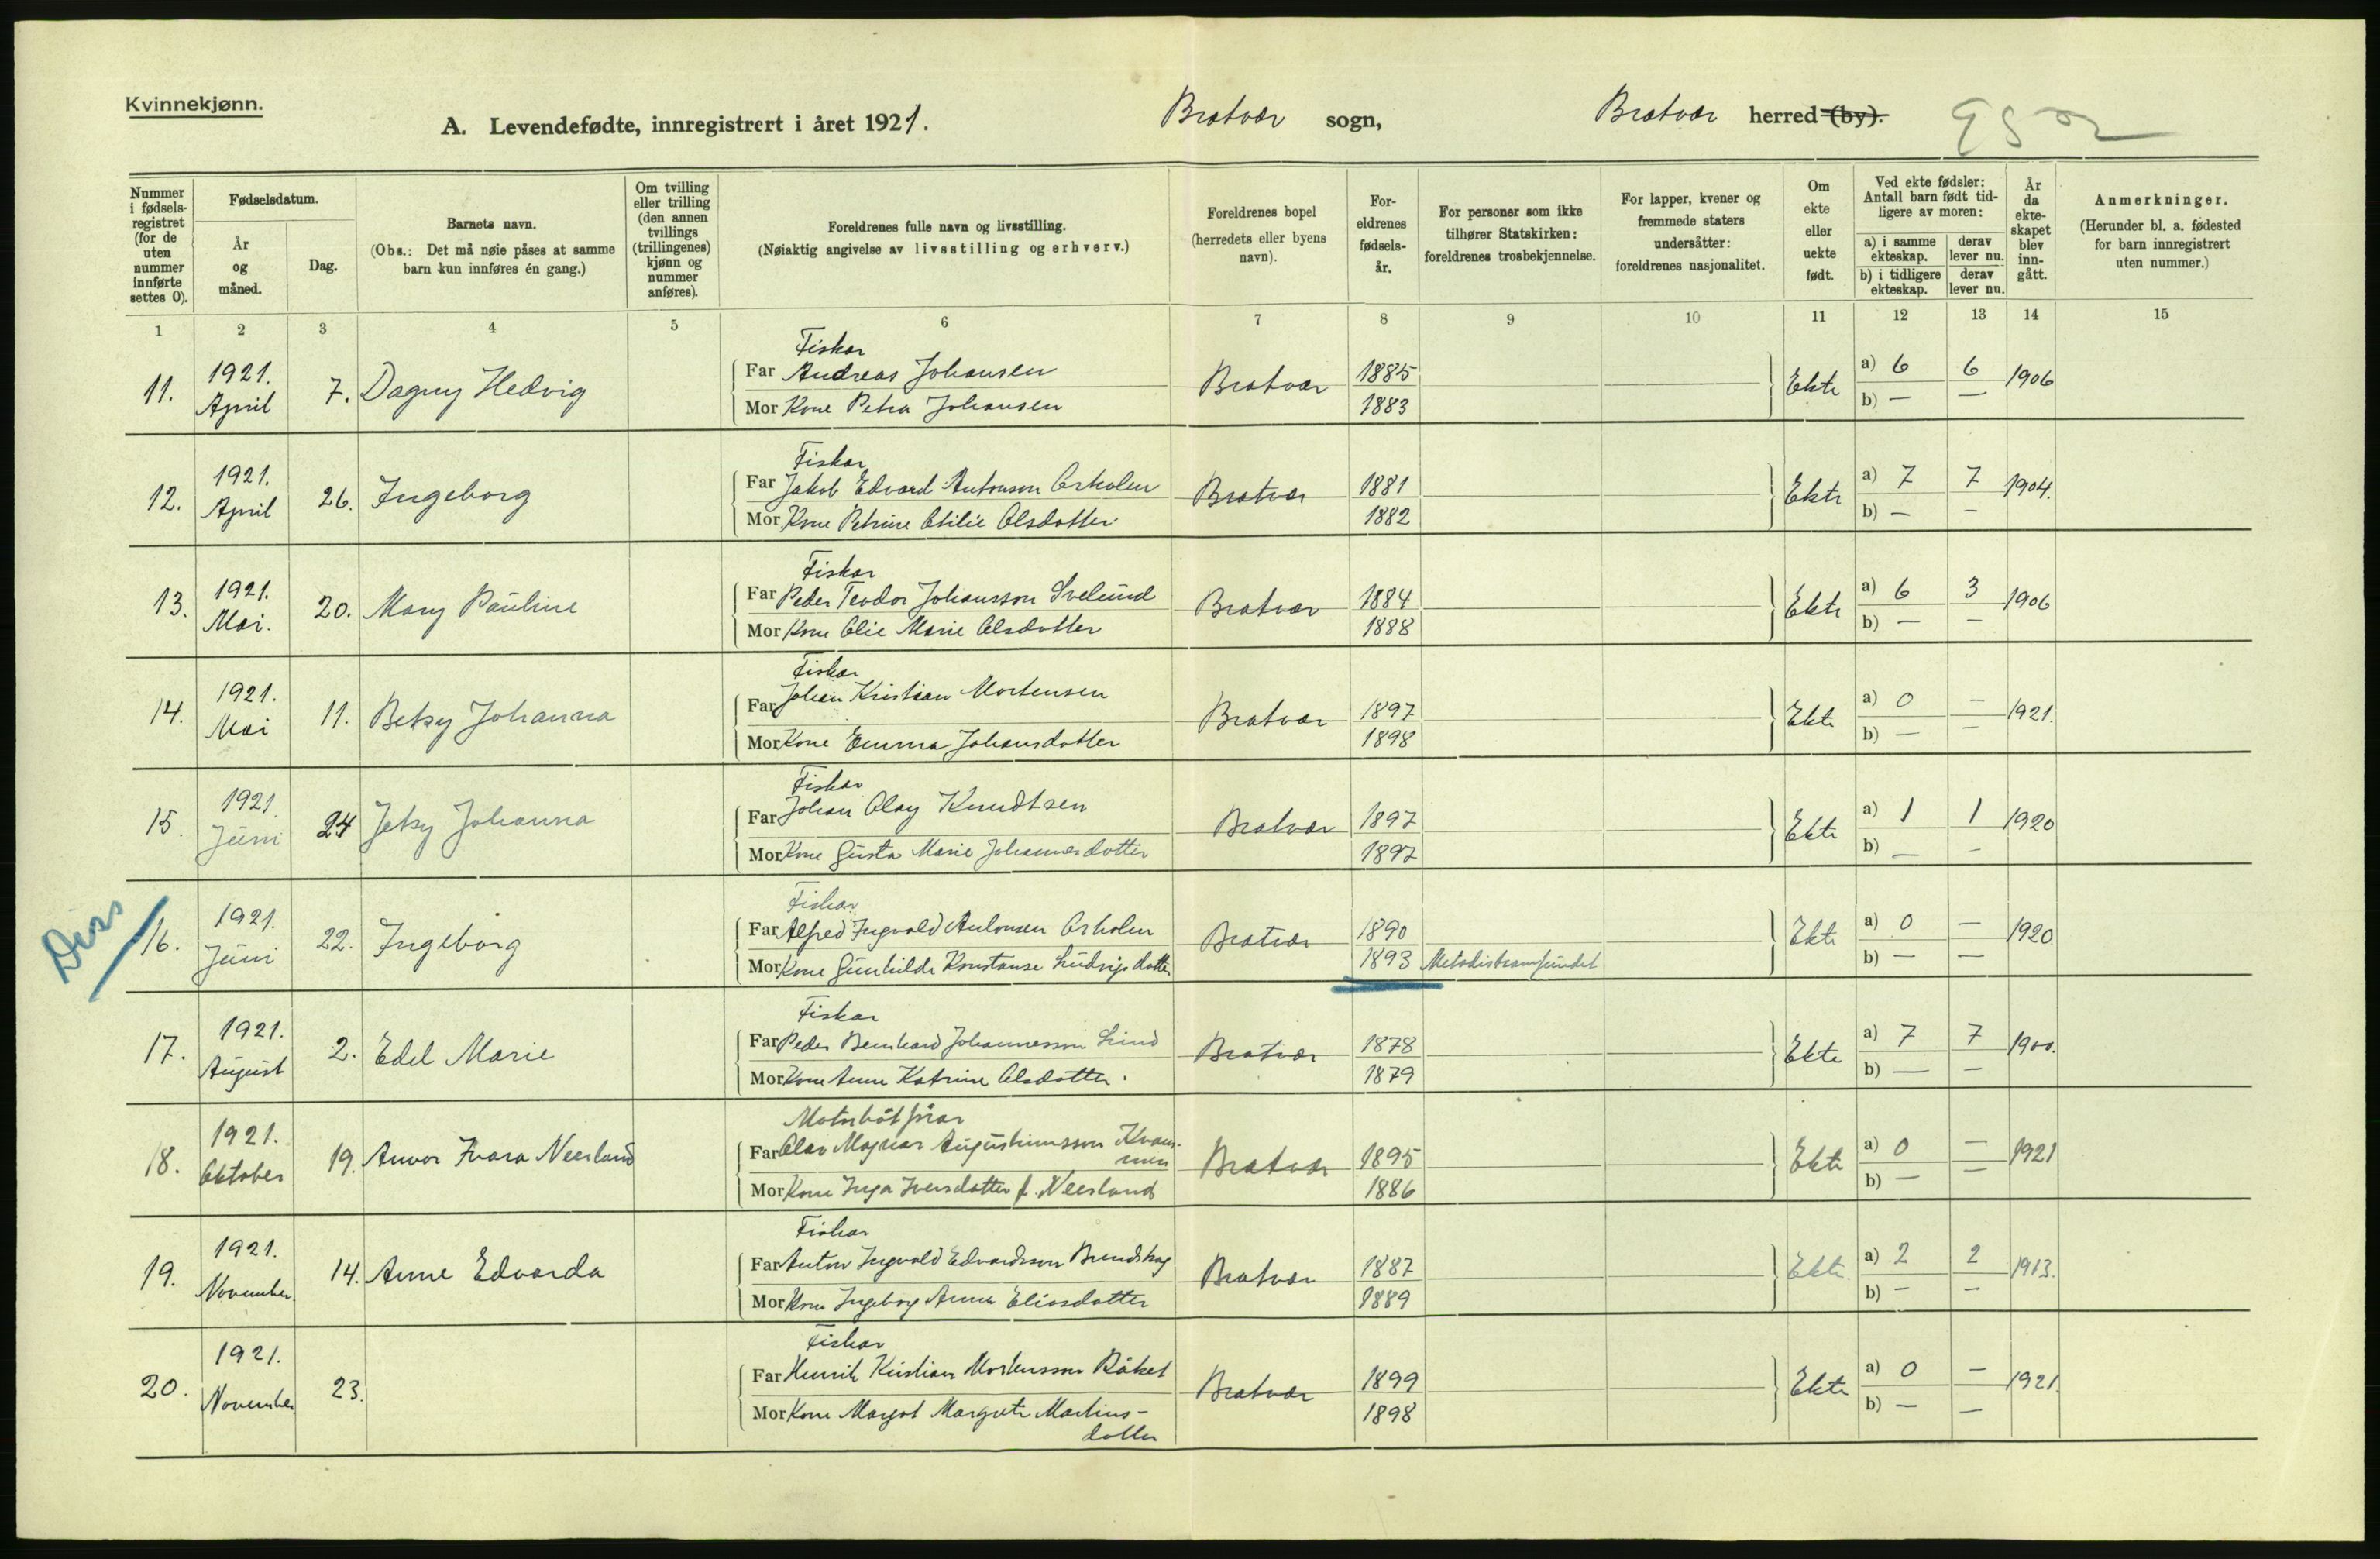 Kvinnekjønn.
A. Levendefødte, innregistrert i året 1921. Bratvær sogn, Bratvær herred (by).
Nummer i fødsels-registret (for de uten nummer innførte settes 0).
Fødselsdatum.
År og måned.
Dag.
Barnets navn.
(Obs.: Det må nøie påses at samme barn kun innføres én gang.)
Om tvilling eller trilling (den annen tvillings (trillingenes) kjønn og nummer anføres).
Foreldrenes fulle navn og livsstilling.
(Nøiaktig angivelse av livsstilling og erhverv.)
Foreldrenes bopel (herredets eller byens navn).
For-eldrenes fødsels-år.
For personer som ikke tilhører Statskirken: foreldrenes trosbekjennelse.
For lapper, kvener og fremmede staters undersåtter: foreldrenes nasjonalitet.
Om ekte eller uekte født.
Ved ekte fødsler: Antall barn født tid-ligere av moren:
a) i samme ekteskap.
derav lever nu.
b) i tidligere ekteskap.
derav lever nu.
År da ekte-skapet blev inn-gått.
Anmerkninger.
(Herunder bl. a. fødested for barn innregistrert uten nummer.)
1 2 3 4 5 6 7 8 9 10 11 12 13 14 15
Fiskar
11. 1921. April 7. Dagny Hedvig Far Andreas Johansen Bratvær 1885 Ekte a) 6 6 1906
Mor Kone Petra Johansen 1883 b) — —
Fiskar
12. 1921. April 26. Ingeborg Far Jakob Edvard Antonson Orholen Bratvær 1881 Ekte a) 7 7 1904.
Mor Kone Petrine Otilie Olsdotter 1882 b) — —
Fiskar
13. 1921. Mai. 20. Mary Pauline Far Peder Teodor Johansson Svelund Bratvær 1884 Ekte a) 6 3 1906
Mor Kone Olie Marie Olsdotter 1888 b) — —
Fiskar
14. 1921. Mai 11. Betsy Johanna Far Johan Kristian Mortensen Bratvær 1897 Ekte a) 0 — 1921.
Mor Kone Emma Johansdotter 1898 b) — —
Fiskar
15. 1921 Juni 24 Jetsy Johanna Far Johan Olay Knudtsen Bratvær 1897 Ekte a) 1 1 1920
Mor Kone Gusta Marie Johannesdotter 1897 b) — —
Fiskar
Diss 16. 1921. Juni 22. Ingeborg Far Alfred Ingvald Antonsen Orholen Bratvær 1890 Ekte a) 0 — 1920
Mor Kone Gunhilde Konstanse Ludvigsdotter 1893 Metodistsamfundet b) — —
Fiskar
17. 1921. August 2. Edel Marie Far Peder Bernhard Johannesson Lund Bratvær 1878 Ekte a) 7 7 1900.
Mor Kone Anne Katrine Olsdotter. 1879 b) — —
Motorbåtførar
18. 1921. Oktober 19. Anvor Ivara Neerland Far Olav Magnar Augustinusson Bratvær 1895 Ekte a) 0 — 1921
Mor Kone Inga Iversdotter f. Neerland 1886 b) — —
Fiskar
19. 1921. November 14. Anne Edvarda Far Anton Ingvald Edvardsson Bratvær 1887 Ekte. a) 2 2 1913.
Mor Kone Ingeborg Anna Eliasdotter 1889 b) — —
Fiskar
20. 1921. November 23. Far Henrik Kristian Mortensson Råket Bratvær 1899 Ekte a) 0 — 1921.
Mor Kone Margot Margrete Martins-
dotter 1898 b) — —